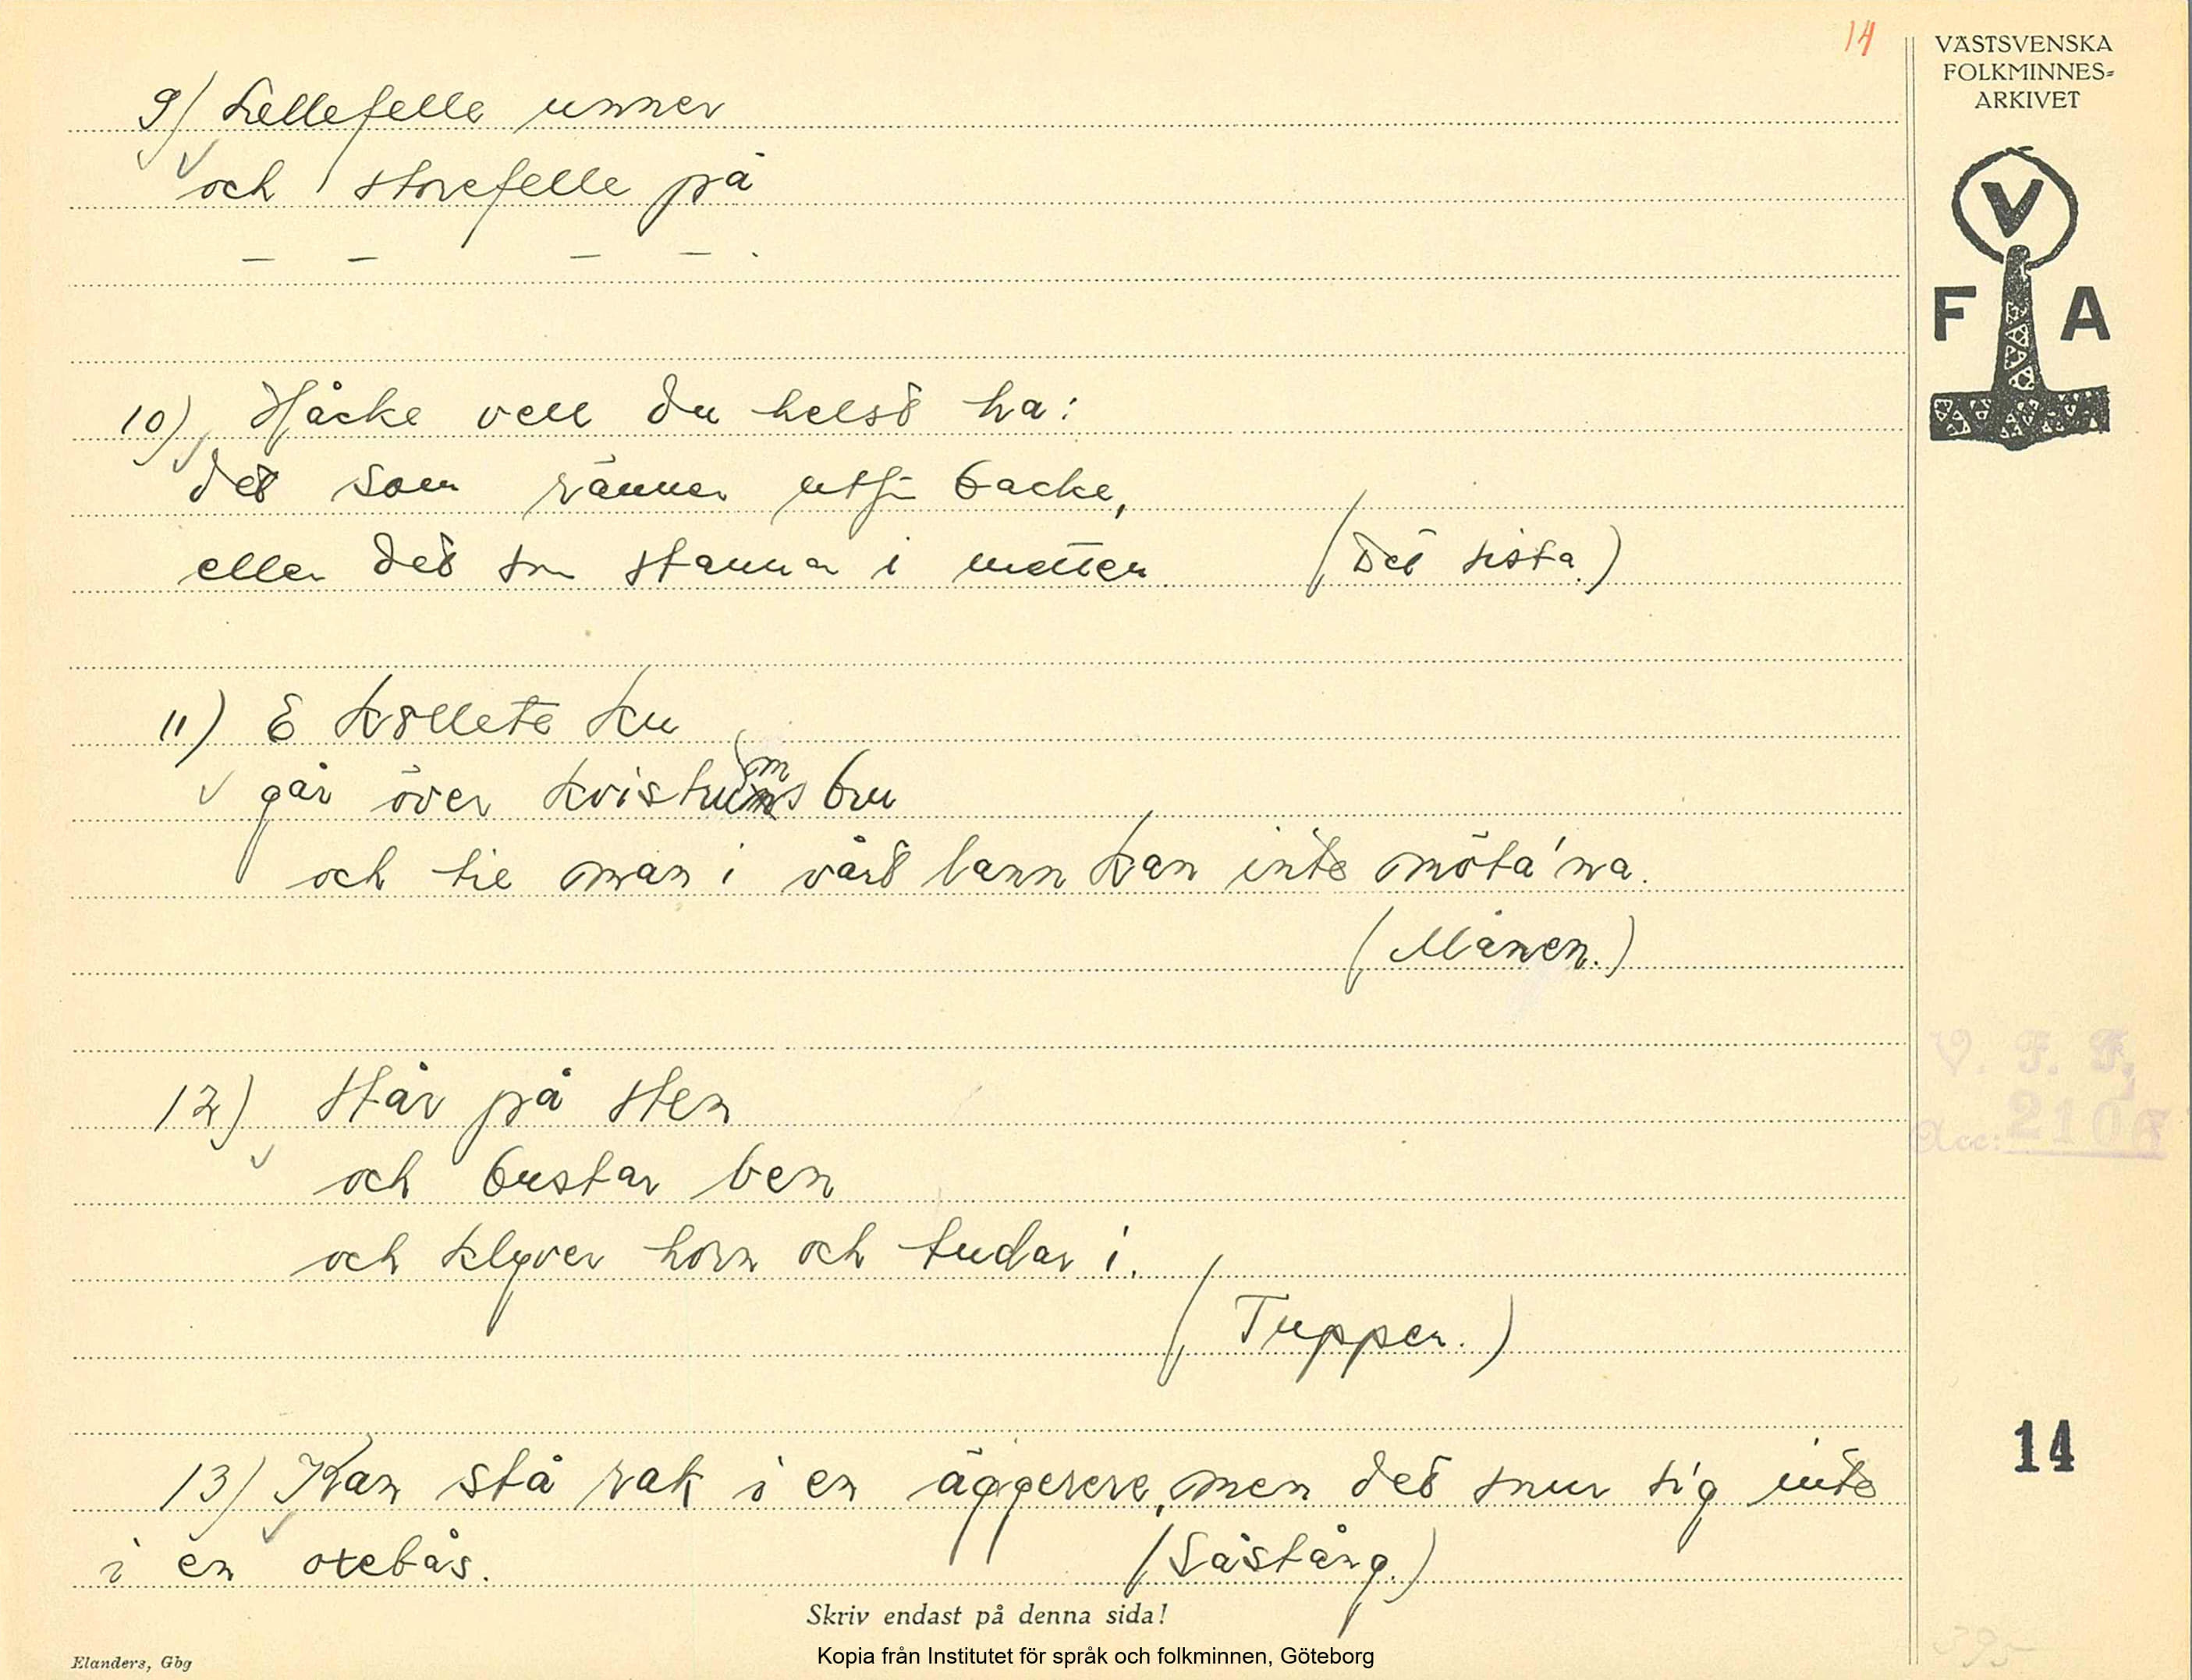 14
VÄSTSVENSKA
FOLKMINNES=
ARKIVET
V
F A
9) Lellefelle unner
och storefelle på
— — — — .
10) Håcke vell du helst ha:
det som ränner utför backe,
eller det som stannar i metten (Det sista.)
11) E kollete ku
går över Kvistrums bru
och tie man i vårt lann kan inte möta'na.
(Månen.)
12) Står på sten
och bustar ben
och klyver horn och tudar i.
(Tuppen.)
13) Kan stå rak i en äggerere, men det snur sig inte
i en oxebås. (Låstång.)
V. F. F.
Acc: 2106
14
395
Skriv endast på denna sida!
Kopia från Institutet för språk och folkminnen, Göteborg
Elanders, Gbg